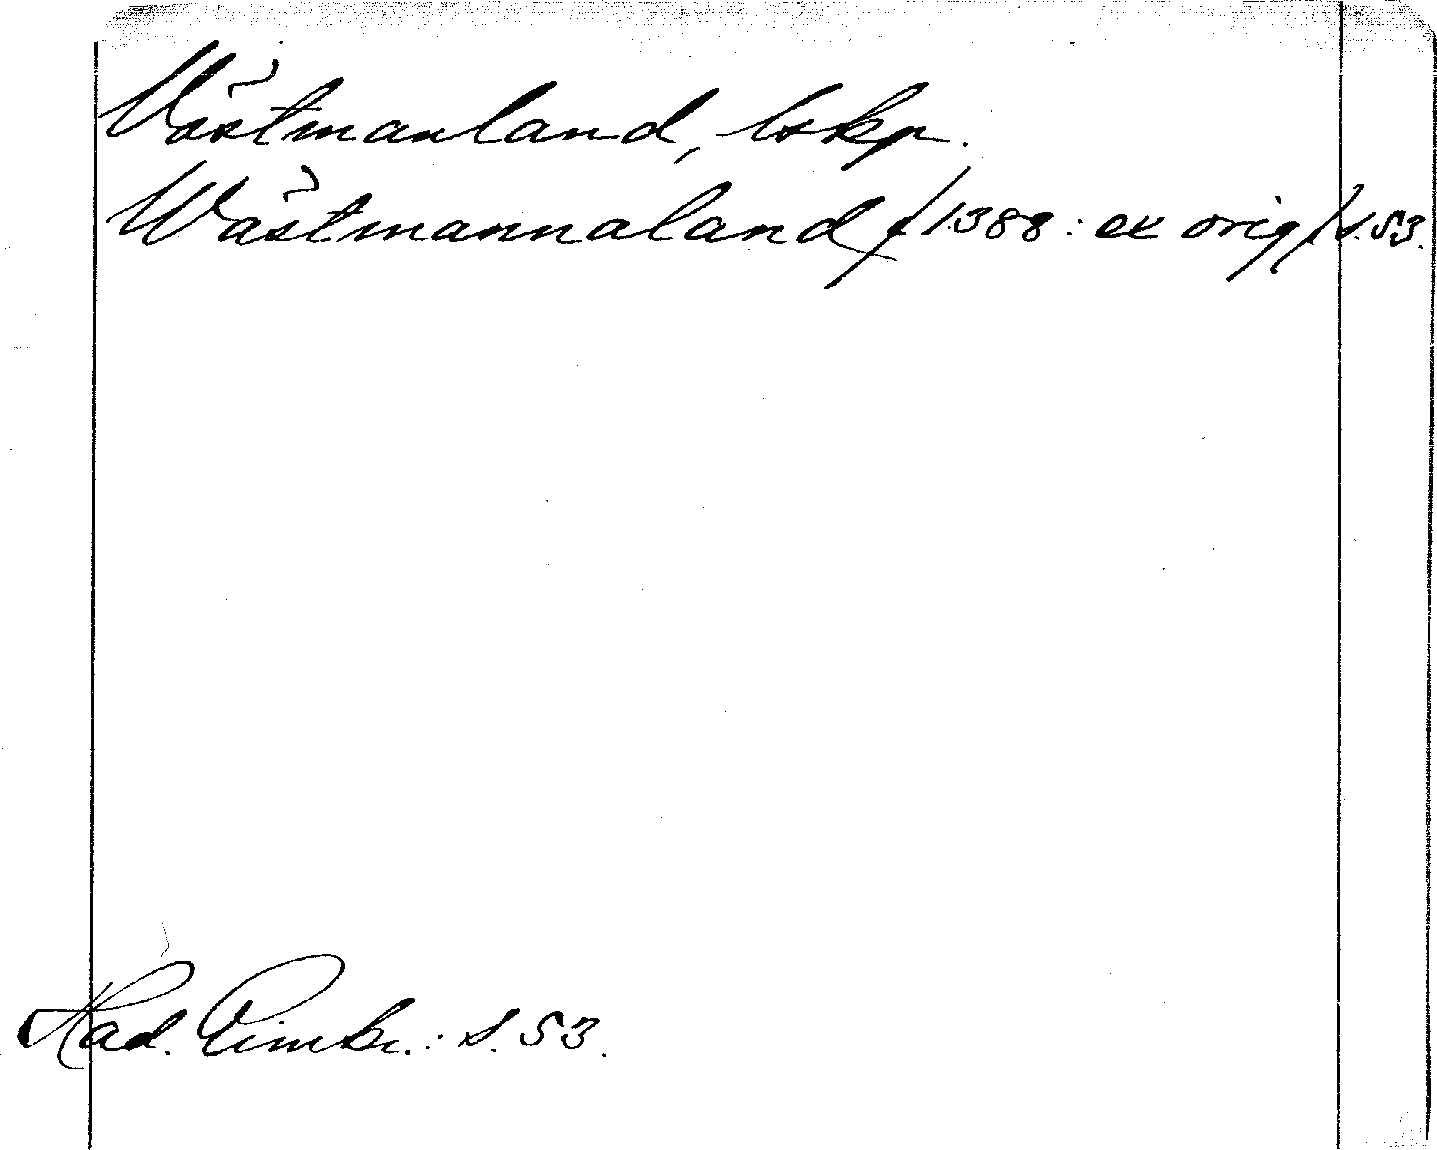 Västmanland, lskp.
Wästmannaland /1388: ex orig/ s. 53.
Kad. Limbr.: s. 53.